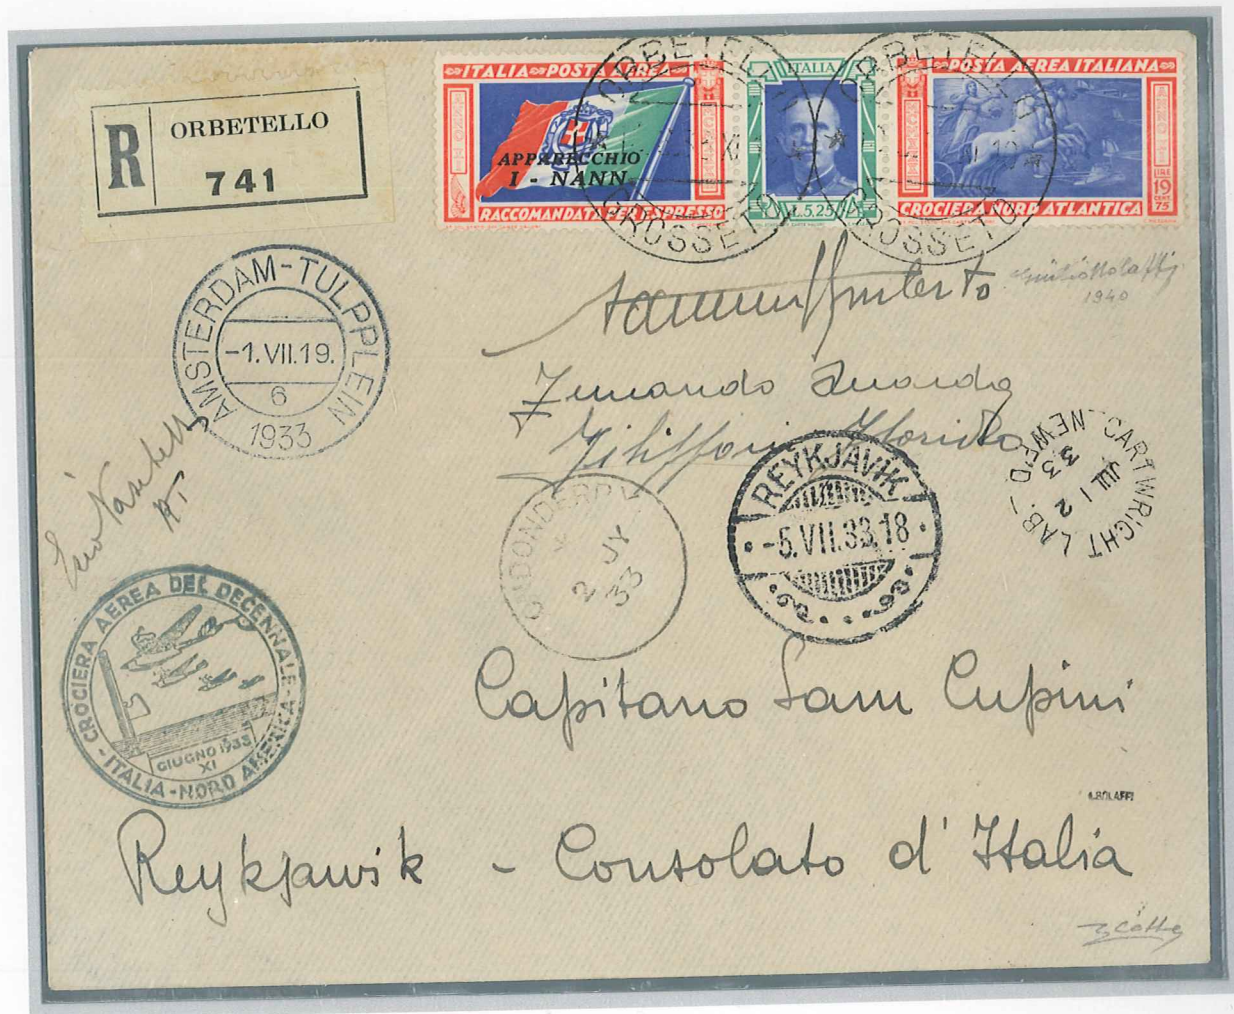 R ORBETELLO
741
ITALIA POSTA AEREA
APPARECCHIO
I - NANN
RACCOMANDATA PER ESPRESSO
ITALIA
L. 5,25
POSTA AEREA ITALIANA
LIRE 19 CENT. 75
CROCIERA NORD ATLANTICA
ORBETELLO
GROSSETO
ORBETELLO
GROSSETO
1940
AMSTERDAM-TULPPLEIN
-1.VII.19.
6
1933
REYKJAVIK
-5.VII.33.18
CARTWRIGHT LAB. NEWF'D.
JUL 12
33
LONDONDERRY
2 JY
33
CROCIERA AEREA DEL DECENNALE
GIUGNO 1933
XI
ITALIA - NORD AMERICA
Capitano Sam Cupini
A.BOLAFFI
Reykjawik - Consolato d'Italia